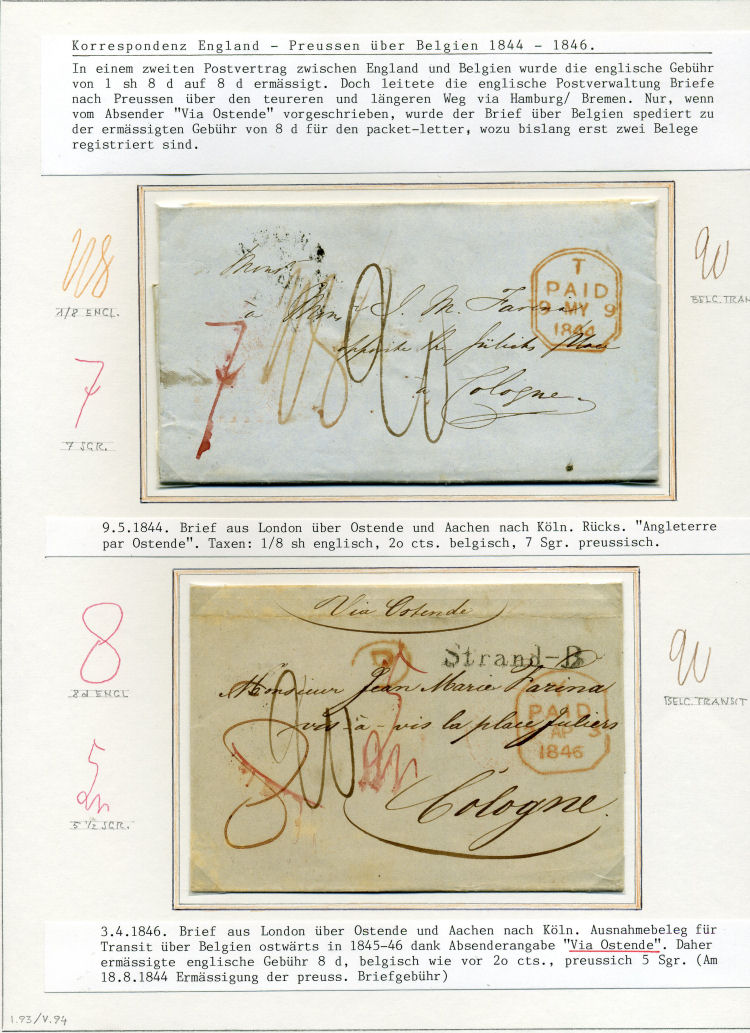 Korrespondenz England - Preussen über Belgien 1844 - 1846.
In einem zweiten Postvertrag zwischen England und Belgien wurde die englische Gebühr
von 1 sh 8 d auf 8 d ermässigt. Doch leitete die englische Postverwaltung Briefe
nach Preussen über den teureren und längeren Weg via Hamburg/ Bremen. Nur, wenn
vom Absender "Via Ostende" vorgeschrieben, wurde der Brief über Belgien spediert zu
der ermässigten Gebühr von 8 d für den packet-letter, wozu bislang erst zwei Belege
registriert sind.
1/8 ENGL.
7
7 SGR.
T
PAID
9 MY 9
1844
à
J. M. Farina
opposite the Jülichs Place
à Cologne.
7
20
20
BELG. TRAN
9.5.1844. Brief aus London über Ostende und Aachen nach Köln. Rücks. "Angleterre
par Ostende". Taxen: 1/8 sh englisch, 2o cts. belgisch, 7 Sgr. preussisch.
8
8d ENGL
5
5 1/2 SGR.
Via Ostende
Strand-B
Monsieur Jean Marie Farina
vis-à-vis la place Juliers
Cologne.
PAID
AP 3
1846
8
20
20
BELG. TRANSIT
3.4.1846. Brief aus London über Ostende und Aachen nach Köln. Ausnahmebeleg für
Transit über Belgien ostwärts in 1845-46 dank Absenderangabe "Via Ostende". Daher
ermässigte englische Gebühr 8 d, belgisch wie vor 2o cts., preussich 5 Sgr. (Am
18.8.1844 Ermässigung der preuss. Briefgebühr)
1.93/V.94